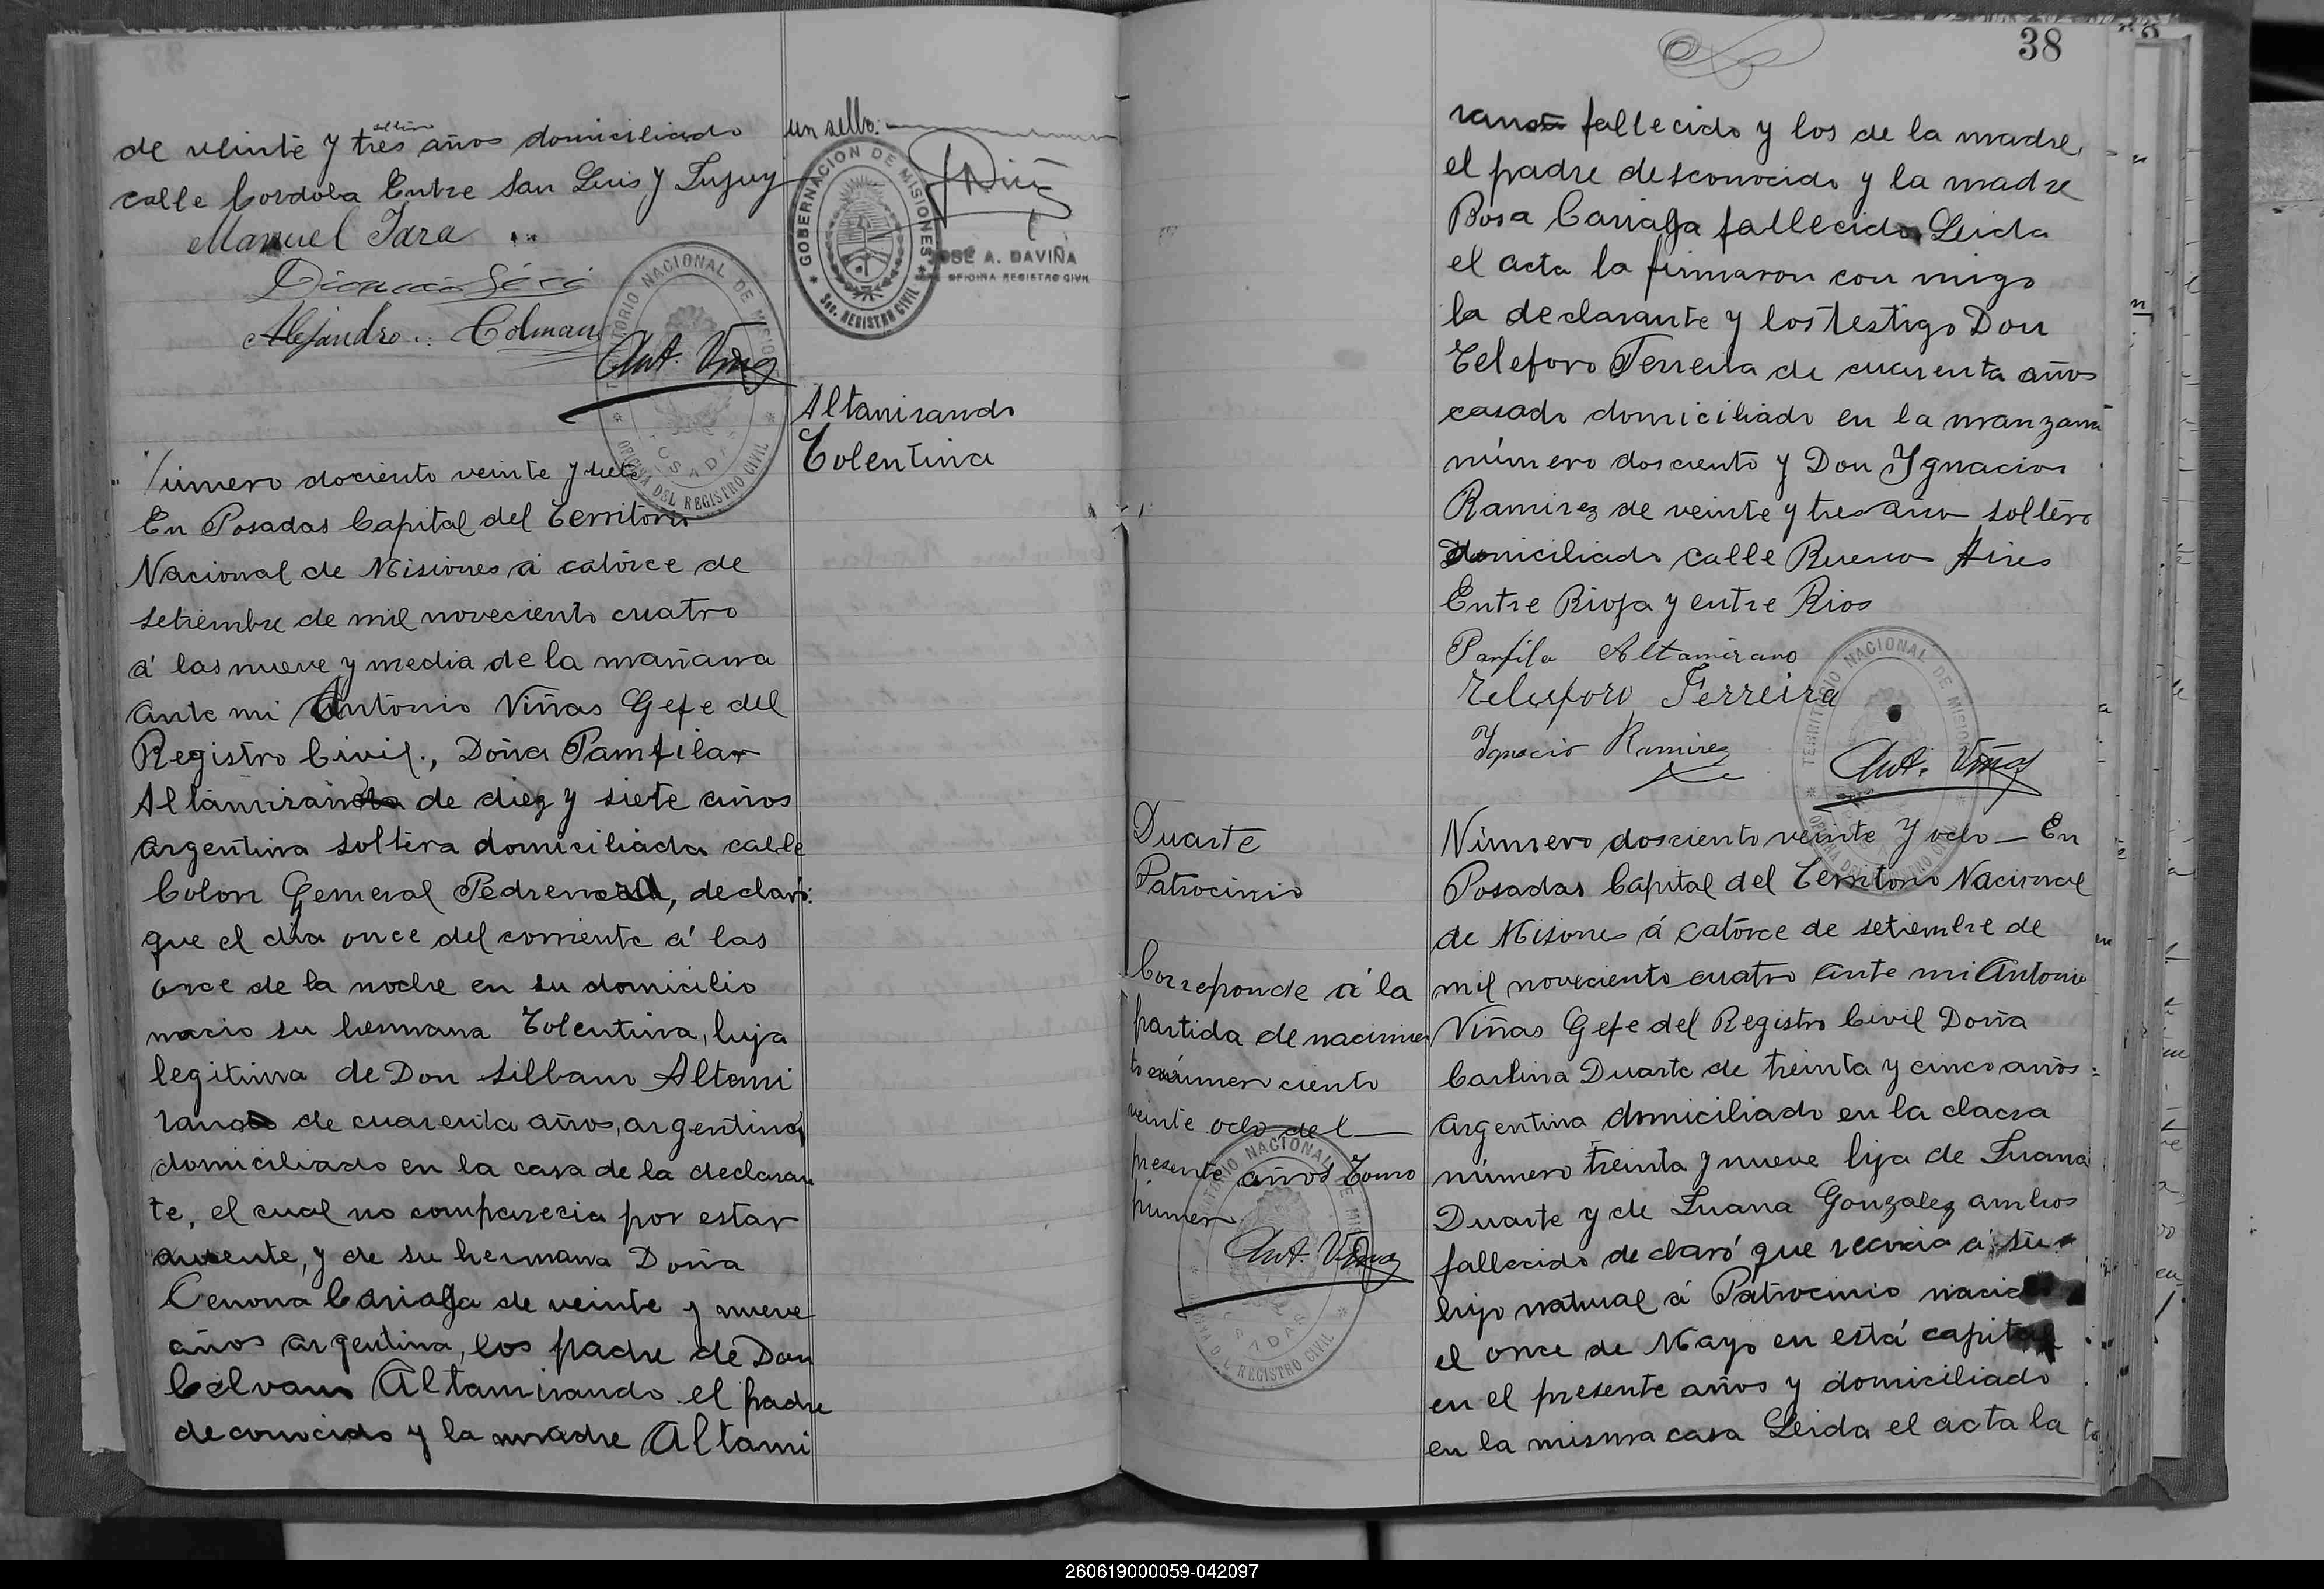 de veinte y tres años domiciliado
soltero
calle Cordoba Entre San Luis y Jujuy
Manuel Jara
Alejandro Colman
Ant. Viñas
TERRITORIO NACIONAL DE MISIONES
POSADAS
OFICINA DEL REGISTRO CIVIL
un sello.
GOBERNACION DE MISIONES
Sec. REGISTRO CIVIL
JOSÉ A. DAVIÑA
OFICINA REGISTRO CIVIL
Altamirando
Tolentina
Número dociento veinte y siete
En Posadas Capital del Territorio
Nacional de Misiones á catorce de
setiembre de mil noveciento cuatro
á las nueve y media de la mañana
ante mi Antonio Viñas Gefe del
Registro Civil., Doña Pamfila
Altamirano de diez y siete años
argentina soltera domiciliada calle
Colon General Pedrenera, declaró:
que el dia once del corriente á las
once de la noche en su domicilio
nacio su hermana Tolentina, hija
legitima de Don Silbano Altami
rano de cuarenta años, argentino,
domiciliado en la casa de la declaran
te, el cual no comparecia por estar
ausente, y de su hermana Doña
Cenona Cariaga de veinte y nueve
años argentina, los padre de Don
Celvano Altamirando el padre
deconocido y la madre Altami
38
rano fallecido y los de la madre,
el padre desconocido y la madre
Rosa Cariaga fallecido, Leida
el acta la firmaron con migo
la declarante y los testigo Don
Teleforo Ferreira de cuarenta años
casado domiciliado en la manzana
número dosciento y Don Ygnacio
Ramirez de veinte y tres año soltero
domiciliado calle Bueno Aires
Entre Rioja y entre Rios
Panfila Altamirano
Telesforo Ferreira
Ygnacio Ramirez
Ant. Viñas
TERRITORIO NACIONAL DE MISIONES
OFICINA DEL REGISTRO CIVIL
Duarte
Patrocinio
Correponde á la
partida de nacimien
to número ciento
veinte ocho del
presente años Tomo
primer
Ant. Viñas
TERRITORIO NACIONAL DE MISIONES
POSADAS
OFICINA DEL REGISTRO CIVIL
Número dosciento veinte y ocho — En
Posadas Capital del Territorio Nacional
de Misones á catorce de setiembre de
mil noveciento cuatro ante mi Antonio
Viñas Gefe del Registro Civil Doña
Carlina Duarte de treinta y cinco años
argentina domiciliado en la chacra
número treinta y nueve hija de Juana
Duarte y de Juana Gonzalez ambos
fallecido declaró que reconocia á su
hijo natural á Patrocinio nacido
el once de Mayo en está capital
en el presente años y domiciliado
en la misma casa Leida el acta la
260619000059-042097